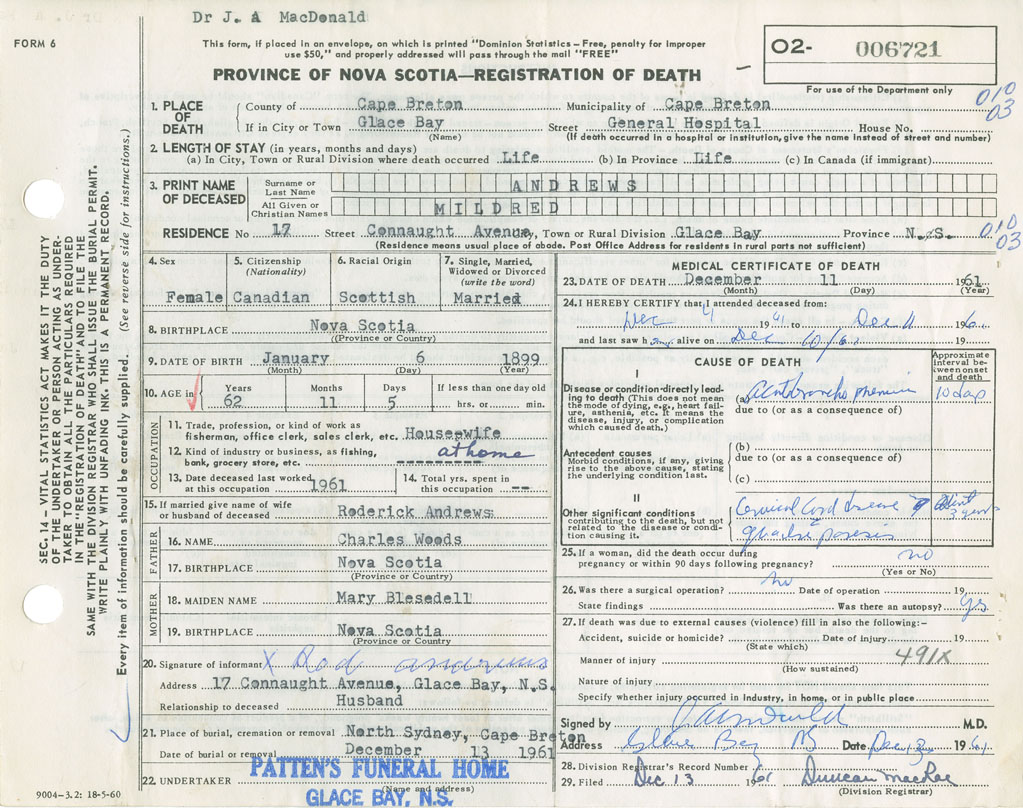 Dr J. A MacDonald
FORM 6
This form, if placed in an envelope, on which is printed "Dominion Statistics – Free, penalty for improper
use $50," and properly addressed will pass through the mail "FREE"
PROVINCE OF NOVA SCOTIA—REGISTRATION OF DEATH
O2- 006721
For use of the Department only
010
03
1. PLACE OF DEATH
County of Cape Breton Municipality of Cape Breton
If in City or Town Glace Bay Street General Hospital House No.
(Name) (If death occurred in a hospital or institution, give the name instead of street and number)
2. LENGTH OF STAY (in years, months and days)
(a) In City, Town or Rural Division where death occurred Life (b) In Province Life (c) In Canada (if immigrant)
3. PRINT NAME OF DECEASED
Surname or Last Name ANDREWS
All Given or Christian Names MILDRED
RESIDENCE No 17 Street Connaught Avenue, Town or Rural Division Glace Bay Province N. S.
(Residence means usual place of abode. Post Office Address for residents in rural parts not sufficient)
010
03
4. Sex 5. Citizenship (Nationality) 6. Racial Origin 7. Single, Married, Widowed or Divorced (write the word)
Female Canadian Scottish Married
8. BIRTHPLACE Nova Scotia
(Province or Country)
9. DATE OF BIRTH January 6 1899
(Month) (Day) (Year)
10. AGE in Years Months Days If less than one day old
62 11 5 hrs. or min.
OCCUPATION
11. Trade, profession, or kind of work as
fisherman, office clerk, sales clerk, etc. Housewife
12. Kind of industry or business, as fishing,
bank, grocery store, etc. at home
13. Date deceased last worked at this occupation 1961
14. Total yrs. spent in this occupation --
15. If married give name of wife
or husband of deceased Roderick Andrews
FATHER
16. NAME Charles Woods
17. BIRTHPLACE Nova Scotia
(Province or Country)
MOTHER
18. MAIDEN NAME Mary Blesedell
19. BIRTHPLACE Nova Scotia
(Province or Country)
20. Signature of informant X Rod Andrews
Address 17 Connaught Avenue, Glace Bay, N.S.
Relationship to deceased Husband
21. Place of burial, cremation or removal North Sydney, Cape Breton
Date of burial or removal December 13 1961
22. UNDERTAKER PATTEN'S FUNERAL HOME
(Name and address)
GLACE BAY, N.S.
9004-3.2: 18-5-60
MEDICAL CERTIFICATE OF DEATH
23. DATE OF DEATH December 11 1961
(Month) (Day) (Year)
24. I HEREBY CERTIFY that I attended deceased from:
Dec 4 1961 to Dec 11 196
and last saw h alive on Dec 10/61
CAUSE OF DEATH
Approximate interval between onset and death
I
Disease or condition directly leading to death (This does not mean
the mode of dying, e.g., heart failure, asthenia, etc. It means the
disease, injury, or complication
which caused death.)
(a) 10 days
due to (or as a consequence of)
Antecedent causes
Morbid conditions, if any, giving
rise to the above cause, stating
the underlying condition last.
(b)
due to (or as a consequence of)
(c)
II
Other significant conditions
contributing to the death, but not
related to the disease or condition causing it.
Cervical Cord disease 3 years
25. If a woman, did the death occur during
pregnancy or within 90 days following pregnancy? no
(Yes or No)
26. Was there a surgical operation? no Date of operation 19
State findings Was there an autopsy? yes
27. If death was due to external causes (violence) fill in also the following:–
Accident, suicide or homicide? Date of injury 19
(State which)
Manner of injury 491X
(How sustained)
Nature of injury
Specify whether injury occurred in Industry, in home, or in public place
Signed by M.D.
Address Glace Bay Date Dec 1961
28. Division Registrar's Record Number
29. Filed Dec 13 1961 Duncan MacRae
(Division Registrar)
SEC. 14 – VITAL STATISTICS ACT MAKES IT THE DUTY
OF THE UNDERTAKER OR PERSON ACTING AS UNDER-
TAKER TO OBTAIN ALL THE PARTICULARS REQUIRED
IN THE "REGISTRATION OF DEATH" AND TO FILE THE
SAME WITH THE DIVISION REGISTRAR WHO SHALL ISSUE THE BURIAL PERMIT.
WRITE PLAINLY WITH UNFADING INK. THIS IS A PERMANENT RECORD.
Every item of information should be carefully supplied. (See reverse side for instructions.)